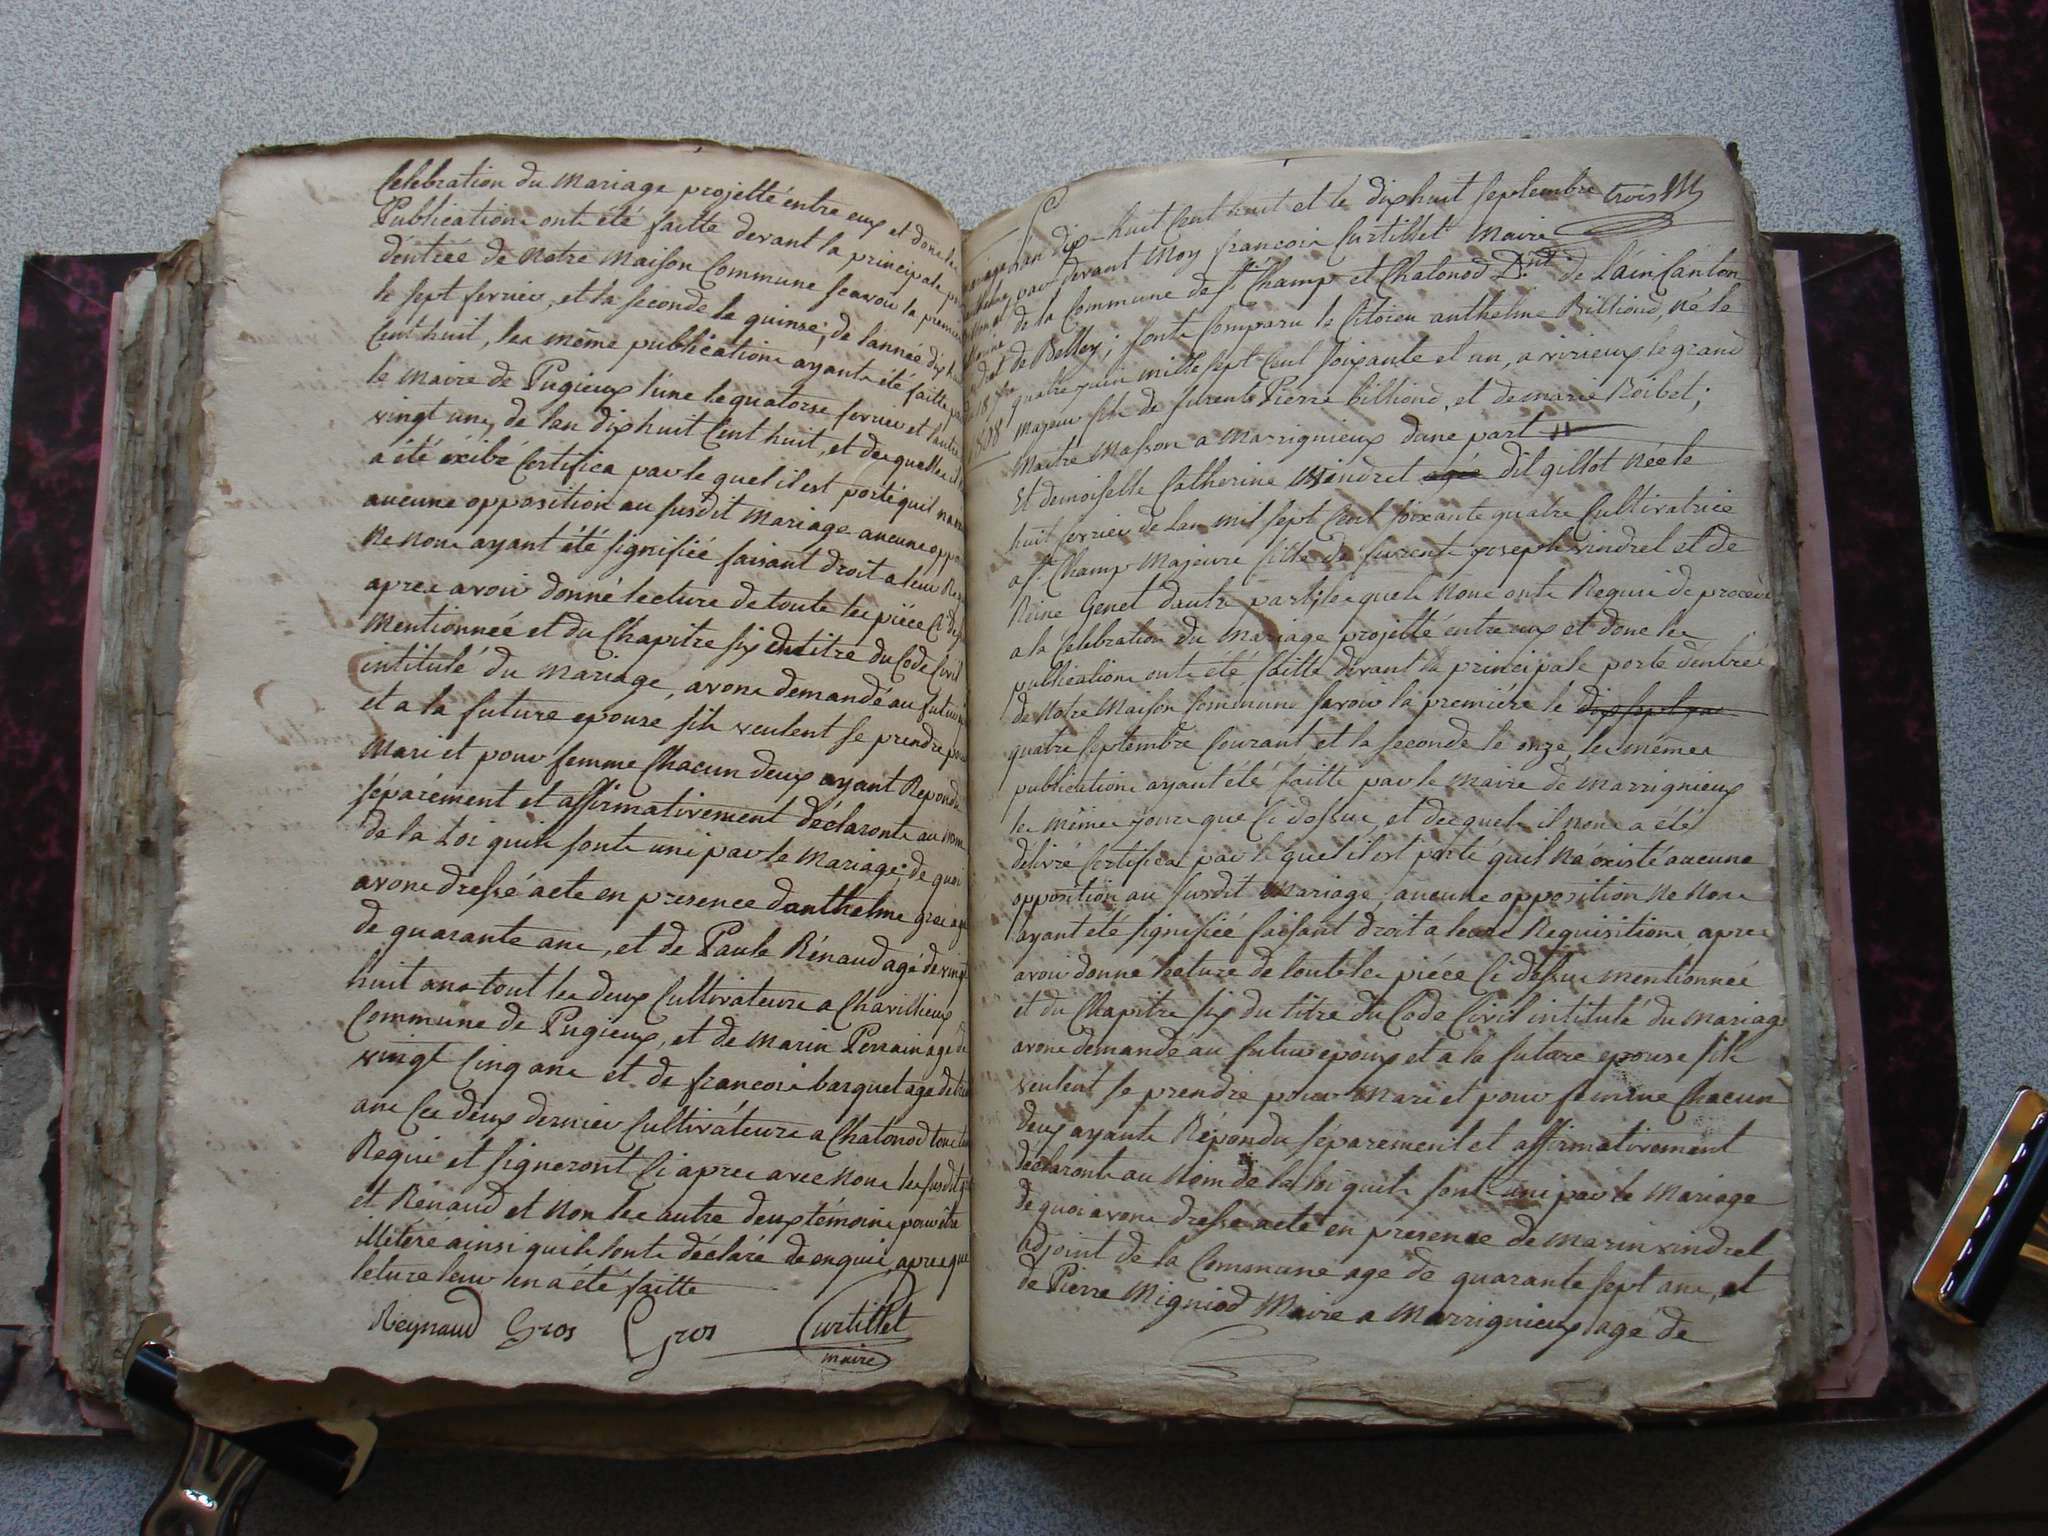 Celebration du Mariage projetté entre eux et dont les
Publications ont été faitte devant la principale
d'entrée de Notre Maison Commune scavoir la premiere
le sept fevrier, et la seconde le quinse, de l'année dix huit
Cent huit, les même publications ayant été faitte par
le Maire de Pugieux l'une le quatorse fevrier et l'autre
vingt un, de l'an dix huit Cent huit, et des quelles il
a été exibé Certifica par le quel il est porté quil na
aucune opposition au susdit Mariage aucune oppo
Ne nous ayant été signifiée faisant droit a leur Re
apres avoir donné lecture de toute les piéce Ci dess
Mentionnée et du Chapitre six du titre du Code Civil
intitulé du Mariage, avons demandé au futur
et a la future epouse sils veulent se prendre pour
Mari et pour femme Chacun deux ayant Repondu
séparément et affirmativement déclarons au nom
de la Loi quils sont uni par le Mariage; de quoi
avons dressé acte en presence d'anthelme gros agé
de quarante ans, et de Paule Rénaud agé de vingt
huit ans tout les deux Cultivateurs a Charillieux
Commune de Pugieux, et de Marin Perrain agé de
vingt Cinq ans et de francois barquet agé de
ans Ces deux dernier Cultivateurs a Chatonod tous
Requis et signeront Ci apres avec nous les susdit
et Rénaud et Non les autre deux témoins pour être
illiteré ainsi quils sont déclaré de enquis, apres que
leture leur en a été faitte
Reynaud Gros Gros Curtillet
maire
trois
Lan dix-huit Cent huit et le dix huit septembre
par devant Moy francois Curtillet Maire
de la Commune de St Champ et Chatonod D.nt de Lain Canton
de Belley; sont Comparu le Citoien anthelme Billioud, né le
quatre juin mille sept Cent soixante et un, a virieux le grand
Majeur fils de furent Pierre billioud, et de marie Roibet;
Maitre Masson a Marignieux dune part
Et demoiselle Catherine Vindret agée dit gillot Née le
huit fevrier de lan mil sept Cent soixante quatre Cultivatrice
a St Champ Majeure fille de furent joseph vindret et de
Reine Genet dautre part; les quels Nous ont Requis de proceder
a la Celebration du Mariage projetté entre eux et dont les
publications ont été faitte devant la principale porte dentrée
de Notre Maison Commune savoir la première le dix sept
quatre septembre Courant et la seconde le onze, les mêmes
publications ayant été faitte par le Maire de Marignieux
les même jours que Ci dessus, et desquels il nous a été
délivré Certifica par le quel il est porté quil na existé aucune
opposition au susdit Mariage, aucune opposition Ne Nous
ayant été signifiée faisant droit a leurs Requisitions, apres
avoir donné lecture de toute les piéce Ci dessus mentionnée
et du Chapitre six du titre du Code Civil intitulé du Mariage
avons demandé au futur epoux et a la future epouse sils
veulent se prendre pour Mari et pour femme Chacun
deux ayants Répondu séparement et affirmativement
déclarons au Nom de la loi quils sont uni par le Mariage
de quoi avons dressé acte en presence de Marin vindret
adjoint de la Commune agé de quarante sept ans, et
de Pierre Migniod Maire a Marrignieux agé de